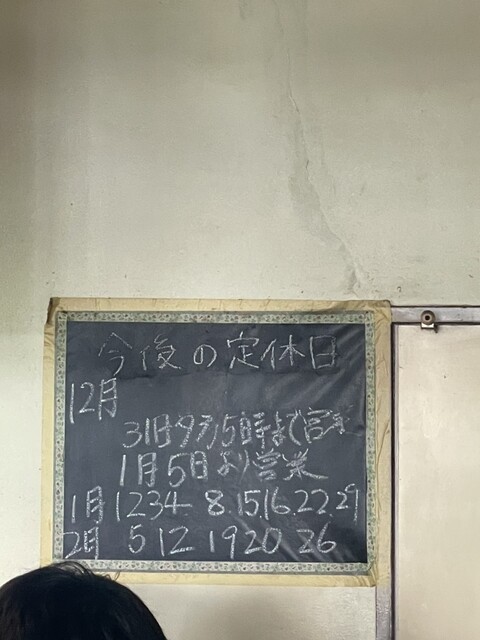 今後の定休日
12月
31日夕方5時まで営業
1月5日より営業
1月 1 2 3 4 8.15 16.22.29
2月 5 12 19 20 26